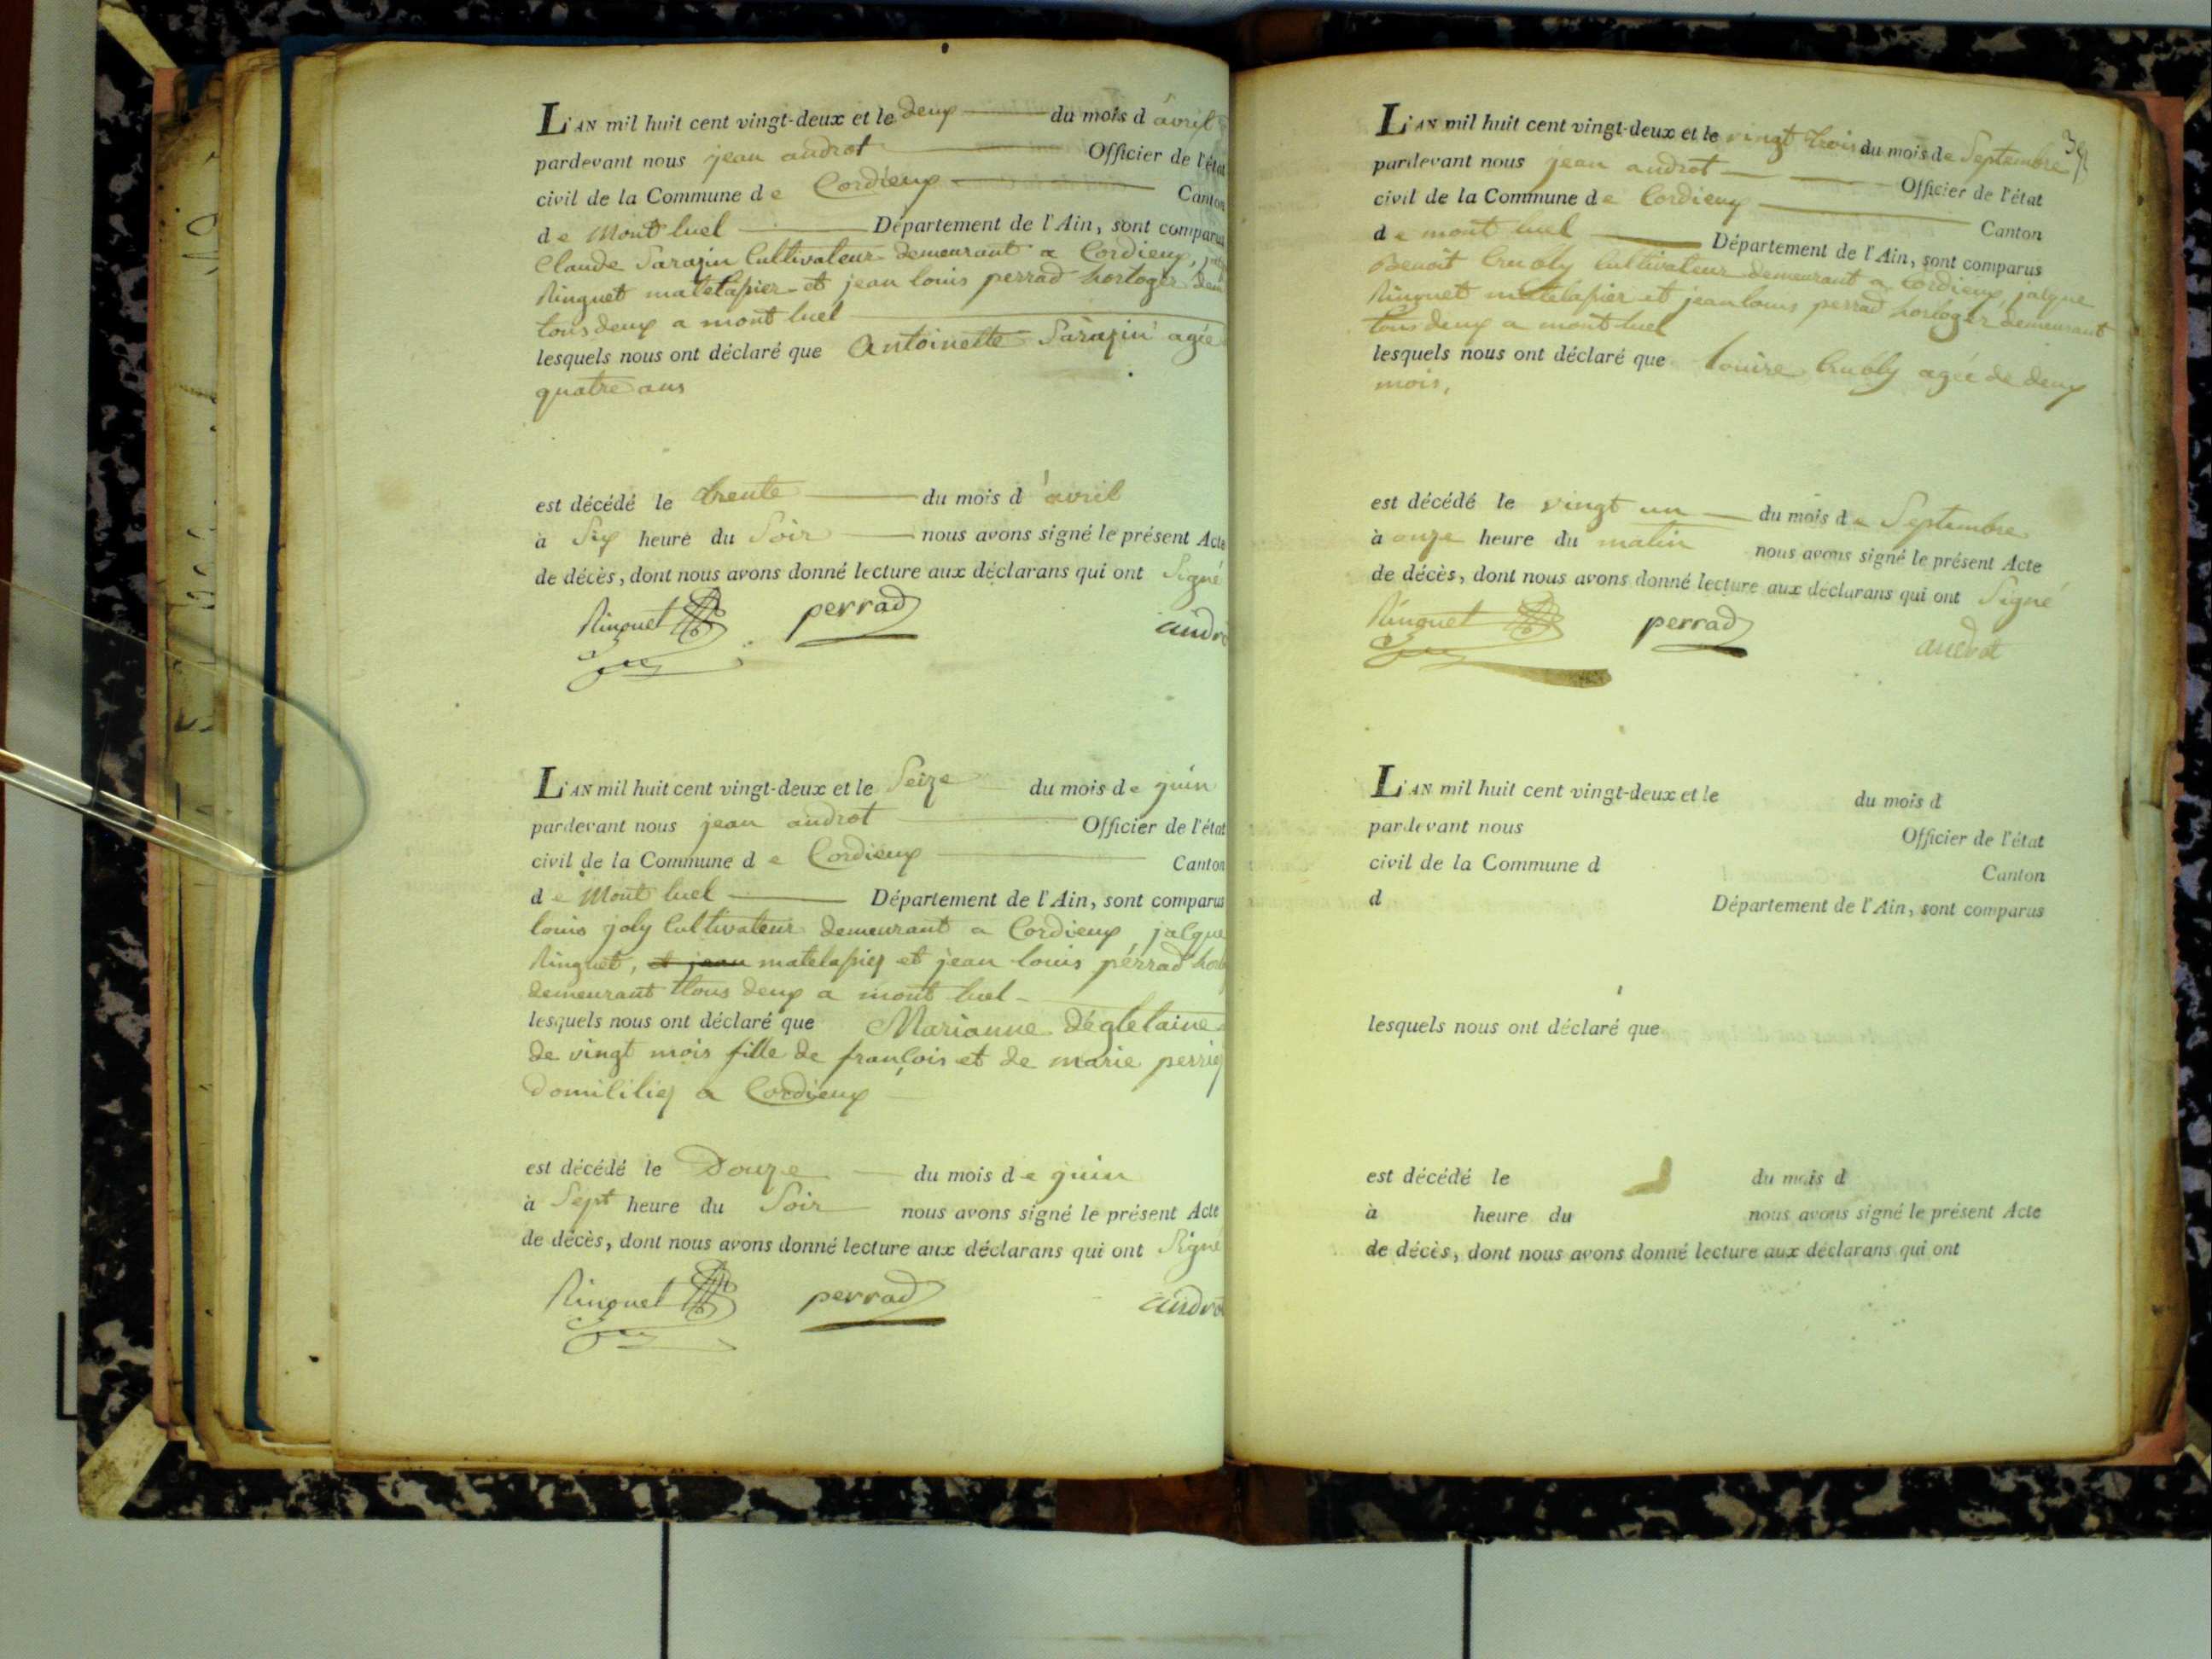 L'AN mil huit cent vingt-deux et le deux du mois d'avril
pardevant nous jean androt Officier de l'état
civil de la Commune de Cordieux Canton
de Mont luel Département de l'Ain, sont comparus
Claude Sarazin Cultivateur demeurant a Cordieux,
Ringuet matelassier et jean louis perrad horloger dem
tous deux a mont luel
lesquels nous ont déclaré que Antoinette Sarazin agée
quatre ans
est décédé le trente du mois d'avril
à Six heure du Soir nous avons signé le présent Acte
de décès, dont nous avons donné lecture aux déclarans qui ont Signé
Ringuet perrad andro
L'AN mil huit cent vingt-deux et le Seize du mois de juin
pardevant nous jean androt Officier de l'état
civil de la Commune de Cordieux Canton
de Mont luel Département de l'Ain, sont comparus
louis joly Cultivateur demeurant a Cordieux jalque
Ringuet, et jean matelassier et jean louis perrad
demeurant tous deux a mont luel
lesquels nous ont déclaré que Marianne déglelaine
de vingt mois fille de françois et de marie perrier
domicilies a Cordieux
est décédé le Douze du mois de juin
à Sept heure du Soir nous avons signé le présent Acte
de décès, dont nous avons donné lecture aux déclarans qui ont Signé
Ringuet perrad andro
L'AN mil huit cent vingt-deux et le vingt trois du mois de Septembre
pardevant nous jean androt Officier de l'état
civil de la Commune de Cordieux Canton
de mont luel Département de l'Ain, sont comparus
Benoit Crubly Cultivateur demeurant a Cordieux, jalque
Ringuet matelassier et jean louis perrad horloger demeurant
tous deux a mont luel
lesquels nous ont déclaré que louise Crubly agée de deux
mois,
est décédé le vingt un du mois de Septembre
à onze heure du matin nous avons signé le présent Acte
de décès, dont nous avons donné lecture aux déclarans qui ont Signé
Ringuet perrad androt
L'AN mil huit cent vingt-deux et le du mois d
pardevant nous Officier de l'état
civil de la Commune d Canton
d Département de l'Ain, sont comparus
lesquels nous ont déclaré que
est décédé le du mois d
à heure du nous avons signé le présent Acte
de décès, dont nous avons donné lecture aux déclarans qui ont